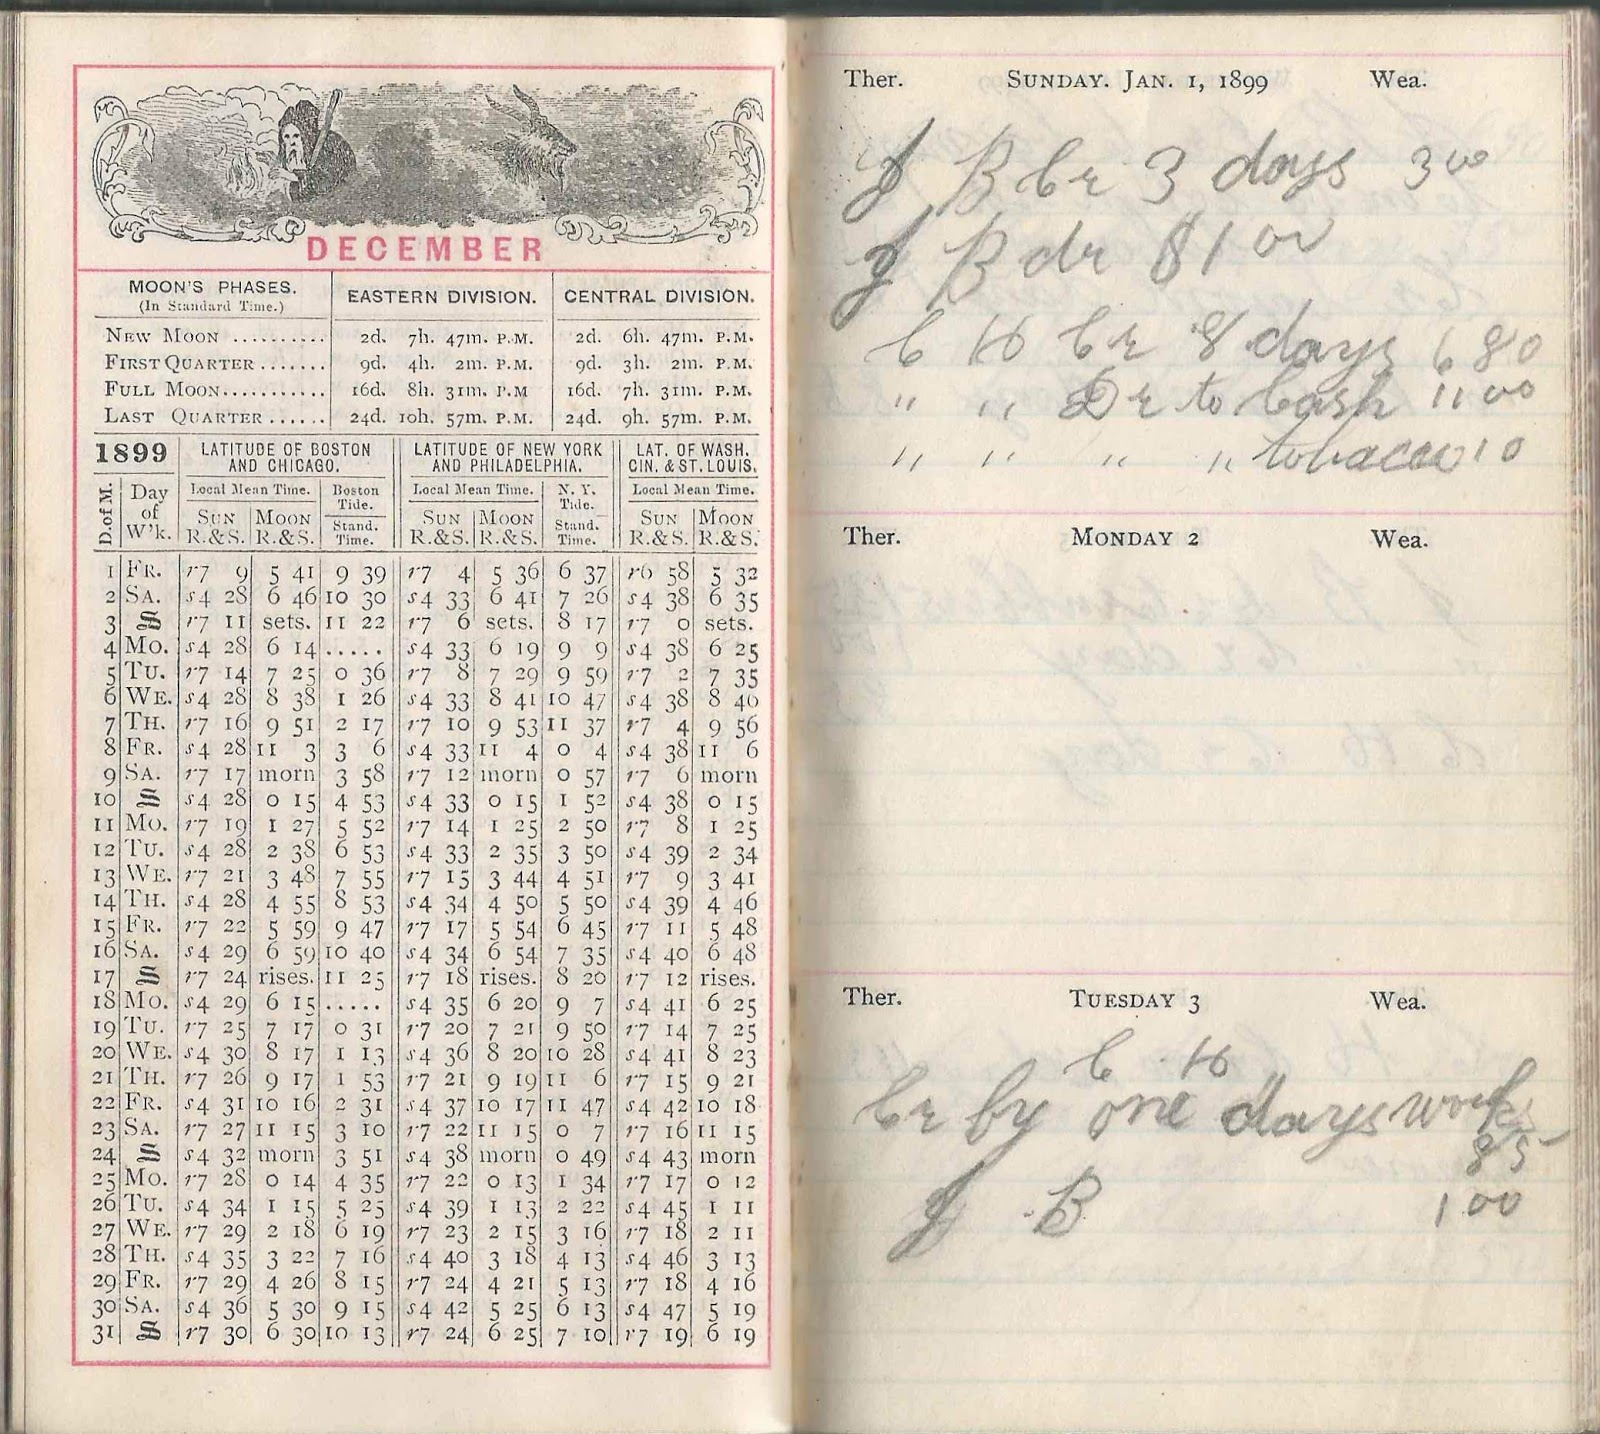 DECEMBER
MOON'S PHASES. (In Standard Time.) EASTERN DIVISION. CENTRAL DIVISION.
NEW MOON .......... 2d. 7h. 47m. P.M. 2d. 6h. 47m. P.M.
FIRST QUARTER ....... 9d. 4h. 2m. P.M. 9d. 3h. 2m. P.M.
FULL MOON........... 16d. 8h. 31m. P.M 16d. 7h. 31m. P.M.
LAST QUARTER ...... 24d. 10h. 57m. P.M. 24d. 9h. 57m. P.M.
1899 LATITUDE OF BOSTON AND CHICAGO. LATITUDE OF NEW YORK AND PHILADELPHIA. LAT. OF WASH. CIN. & ST. LOUIS.
D. of M. Day of W'k. Local Mean Time. Boston Tide. Local Mean Time. N. Y. Tide. Local Mean Time.
SUN R.&S. MOON R.&S. Stand. Time. SUN R.&S. MOON R.&S. Stand. Time. SUN R.&S. MOON R.&S.
1 FR. r7 9 5 41 9 39 r7 4 5 36 6 37 r6 58 5 32
2 SA. s4 28 6 46 10 30 s4 33 6 41 7 26 s4 38 6 35
3 S r7 11 sets. 11 22 r7 6 sets. 8 17 r7 0 sets.
4 MO. s4 28 6 14 ..... s4 33 6 19 9 9 s4 38 6 25
5 TU. r7 14 7 25 0 36 r7 8 7 29 9 59 r7 2 7 35
6 WE. s4 28 8 38 1 26 s4 33 8 41 10 47 s4 38 8 46
7 TH. r7 16 9 51 2 17 r7 10 9 53 11 37 r7 4 9 56
8 FR. s4 28 11 3 3 6 s4 33 11 4 0 4 s4 38 11 6
9 SA. r7 17 morn 3 58 r7 12 morn 0 57 r7 6 morn
10 S s4 28 0 15 4 53 s4 33 0 15 1 52 s4 38 0 15
11 MO. r7 19 1 27 5 52 r7 14 1 25 2 50 r7 8 1 25
12 TU. s4 28 2 38 6 53 s4 33 2 35 3 50 s4 39 2 34
13 WE. r7 21 3 48 7 55 r7 15 3 44 4 51 r7 9 3 41
14 TH. s4 28 4 55 8 53 s4 34 4 50 5 50 s4 39 4 46
15 FR. r7 22 5 59 9 47 r7 17 5 54 6 45 r7 11 5 48
16 SA. s4 29 6 59 10 40 s4 34 6 54 7 35 s4 40 6 48
17 S r7 24 rises. 11 25 r7 18 rises. 8 20 r7 12 rises.
18 MO. s4 29 6 15 ..... s4 35 6 20 9 7 s4 41 6 25
19 TU. r7 25 7 17 0 31 r7 20 7 21 9 50 r7 14 7 25
20 WE. s4 30 8 17 1 13 s4 36 8 20 10 28 s4 41 8 23
21 TH. r7 26 9 17 1 53 r7 21 9 19 11 6 r7 15 9 21
22 FR. s4 31 10 16 2 31 s4 37 10 17 11 47 s4 42 10 18
23 SA. r7 27 11 15 3 10 r7 22 11 15 0 7 r7 16 11 15
24 S s4 32 morn 3 51 s4 38 morn 0 49 s4 43 morn
25 MO. r7 28 0 14 4 35 r7 22 0 13 1 34 r7 17 0 12
26 TU. s4 34 1 15 5 25 s4 39 1 13 2 22 s4 45 1 11
27 WE. r7 29 2 18 6 19 r7 23 2 15 3 16 r7 18 2 11
28 TH. s4 35 3 22 7 16 s4 40 3 18 4 13 s4 46 3 13
29 FR. r7 29 4 26 8 15 r7 24 4 21 5 13 r7 18 4 16
30 SA. s4 36 5 30 9 15 s4 42 5 25 6 13 s4 47 5 19
31 S r7 30 6 30 10 13 r7 24 6 25 7 10 r7 19 6 19
Ther. SUNDAY. JAN. 1, 1899 Wea.
J B Cr 3 days 3 00
J B dr $1 00
C H Cr 8 days 6 80
" " Dr to Cash 11 00
" " " " tobacco 10
Ther. MONDAY 2 Wea.
Ther. TUESDAY 3 Wea.
C. H
Cr by one days works
85
J. B 1 00